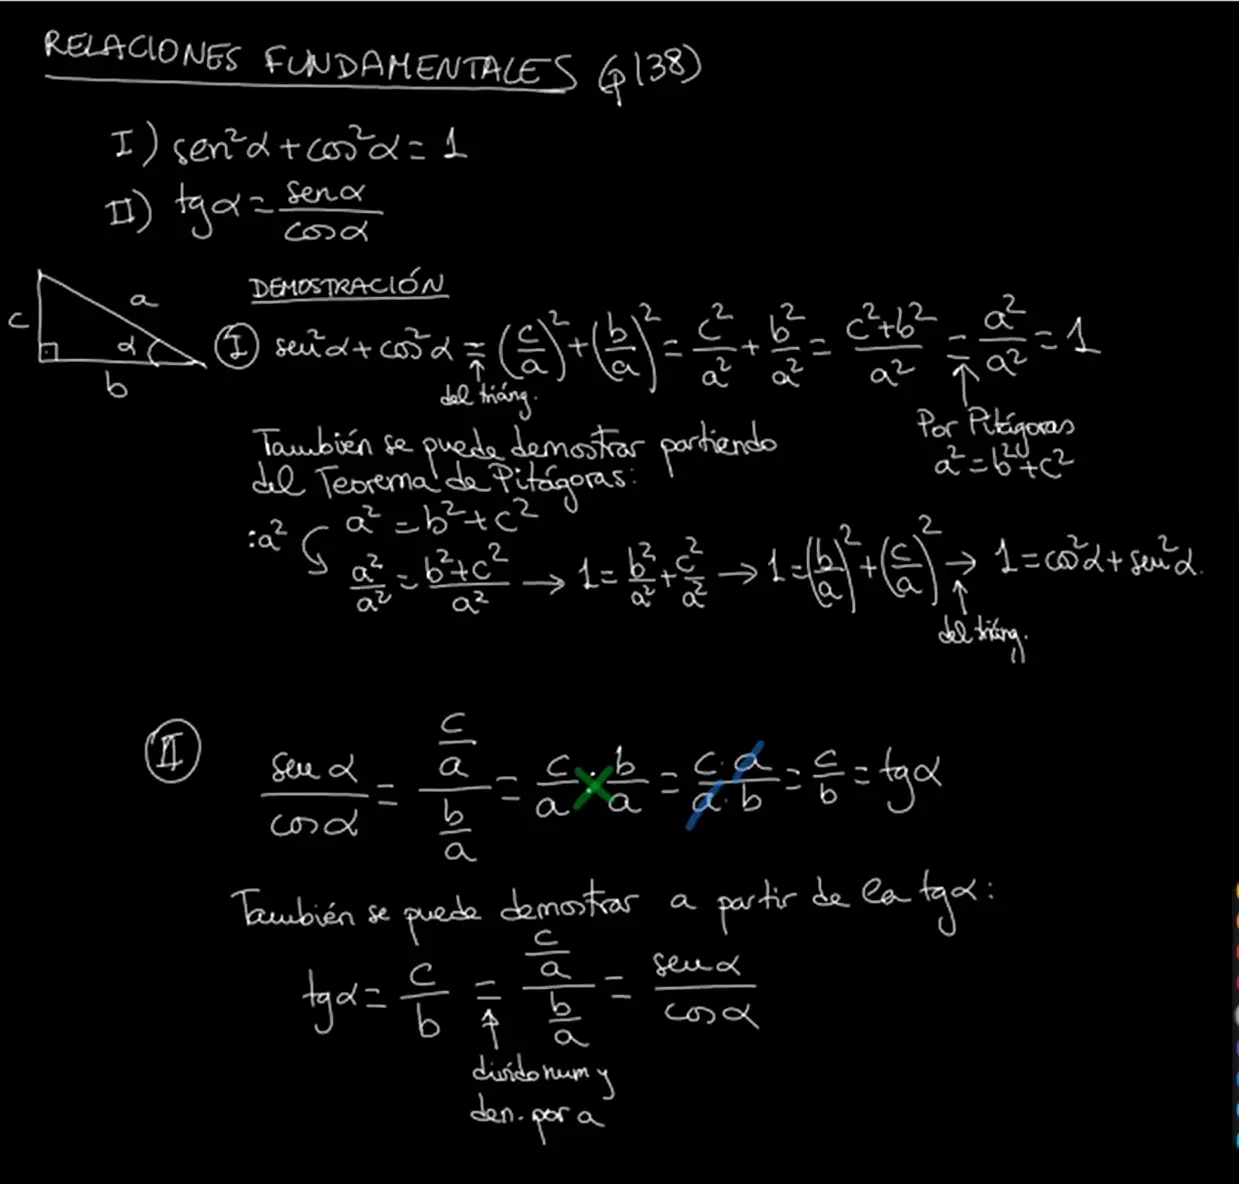 RELACIONES FUNDAMENTALES (p138)
I) sen²α + cos²α = 1
II) tgα = senα/cosα
DEMOSTRACIÓN
c a α b
I sen²α + cos²α = (c/a)² + (b/a)² = c²/a² + b²/a² = (c²+b²)/a² = a²/a² = 1
del triáng.
Por Pitágoras
a² = b² + c²
También se puede demostrar partiendo
del Teorema de Pitágoras:
a² = b² + c²
:a²
a²/a² = (b²+c²)/a² → 1 = b²/a² + c²/a² → 1 = (b/a)² + (c/a)² → 1 = cos²α + sen²α.
del triáng.
II senα/cosα = (c/a)/(b/a) = c/a : b/a = (c·a)/(a·b) = c/b = tgα
También se puede demostrar a partir de la tgα:
tgα = c/b = (c/a)/(b/a) = senα/cosα
divido num y
den. por a